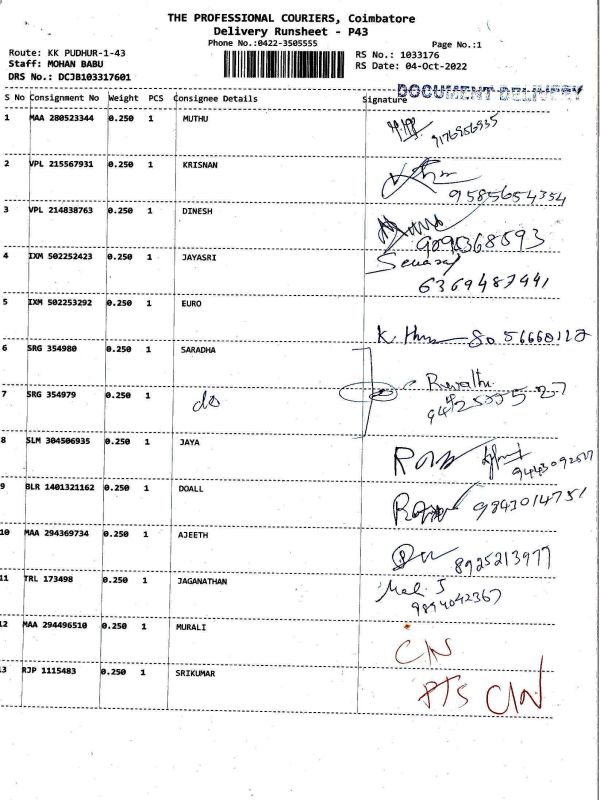 THE PROFESSIONAL COURIERS, Coimbatore
Delivery Runsheet - P43
Phone No.:0422-3505555
Page No.:1
Route: KK PUDHUR-1-43
RS No.: 1033176
Staff: MOHAN BABU
RS Date: 04-Oct-2022
DRS No.: DCJB103317601
DOCUMENT DELIVERY
S No Consignment No Weight PCS Consignee Details Signature
1 MAA 280523344 0.250 1 MUTHU
9176956935
2 VPL 215567931 0.250 1 KRISNAN
9585654354
3 VPL 214838763 0.250 1 DINESH
4 IXM 502252423 0.250 1 JAYASRI
6369487441
5 IXM 502253292 0.250 1 EURO
6 SRG 354980 0.250 1 SARADHA
7 SRG 354979 0.250 1 do
8 SLM 304506935 0.250 1 JAYA
9 BLR 1401321162 0.250 1 DOALL
9843014751
10 MAA 294369734 0.250 1 AJEETH
8925213977
11 TRL 173498 0.250 1 JAGANATHAN
9894042367
12 MAA 294496510 0.250 1 MURALI
CN
13 RJP 1115483 0.250 1 SRIKUMAR
PTS CN